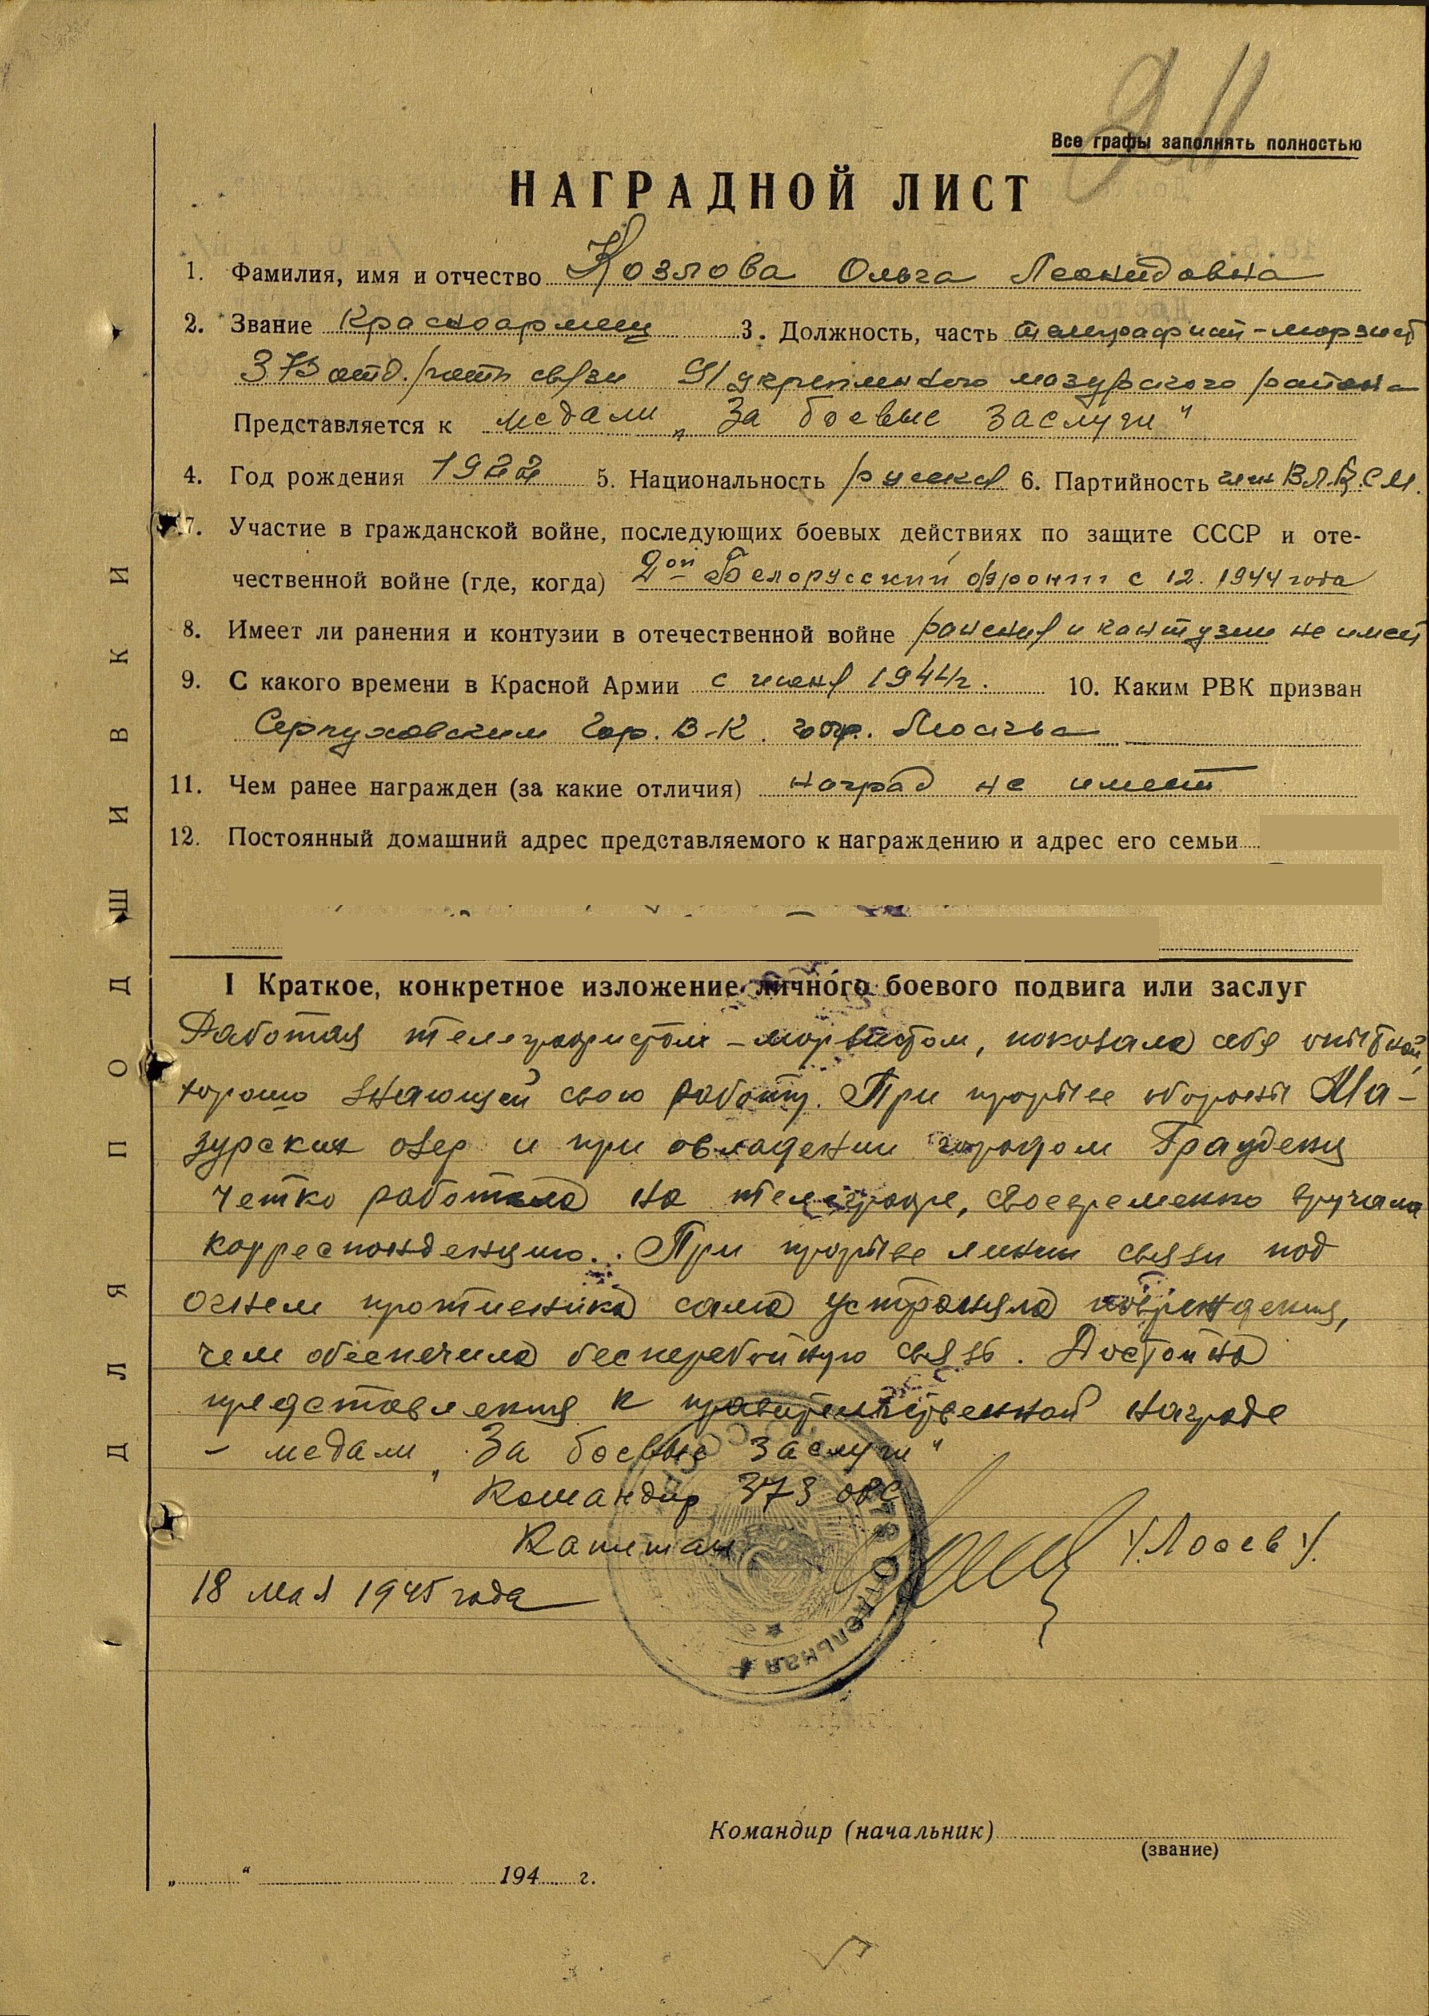 Все графы заполнять полностью
НАГРАДНОЙ ЛИСТ
1. Фамилия, имя и отчество Козлова Ольга Леонидовна
2. Звание Красноармеец 3. Должность, часть телеграфист-морзист
373 отд. роты связи 91 укрепленного мазурского района
Представляется к медали „За боевые заслуги"
4. Год рождения 1922 5. Национальность русская 6. Партийность член ВЛКСМ.
7. Участие в гражданской войне, последующих боевых действиях по защите СССР и оте-
чественной войне (где, когда) 2ой Белорусский фронт с 12. 1944 года
8. Имеет ли ранения и контузии в отечественной войне ранения и контузии не имеет
9. С какого времени в Красной Армии с июня 1944г. 10. Каким РВК призван
Серпуховским Гор. В-К. Москва
11. Чем ранее награжден (за какие отличия) наград не имеет
12. Постоянный домашний адрес представляемого к награждению и адрес его семьи
I Краткое, конкретное изложение личного боевого подвига или заслуг
Работая телеграфистом-морзистом, показала себя опытной,
хорошо знающей свою работу. При прорыве обороны Ма-
зурских озер и при овладении городом Грауденц
четко работала на телеграфе, своевременно вручала
корреспонденцию. При прорыве линии связи под
огнем противника сама устраняла повреждения,
чем обеспечила бесперебойную связь. Достойна
представления к правительственной награде
– медали „За боевые заслуги"
Командир 373 орс
Капитан /Лосев/.
18 мая 1945 года
373 Отдельная Р
Командир (начальник)
(звание)
„ " 194 г.
ДЛЯ ПОДШИВКИ